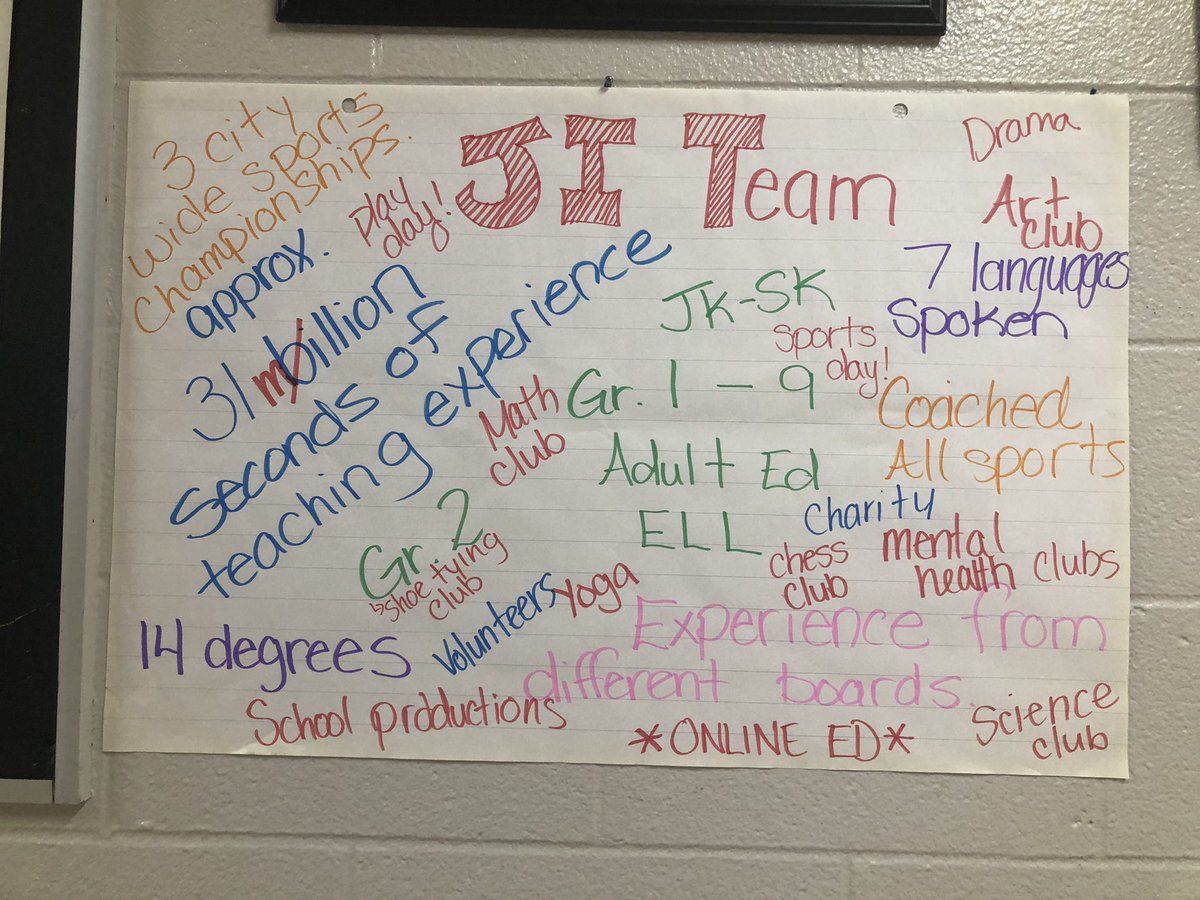 JI Team
3 city
wide sports
Championships.
Play
day!
approx.
31 mbillion
seconds of
teaching experience
Drama
Art
club
7 languages
Spoken
JK-SK
sports
day!
Gr. 1 - 9
Math
club
Coached
All sports
Adult Ed
ELL
Charity
chess
club
mental
health clubs
Gr. 2
↳shoe tying
club
Volunteers
Yoga
14 degrees
Experience from
different boards.
School productions
*ONLINE ED*
Science
club